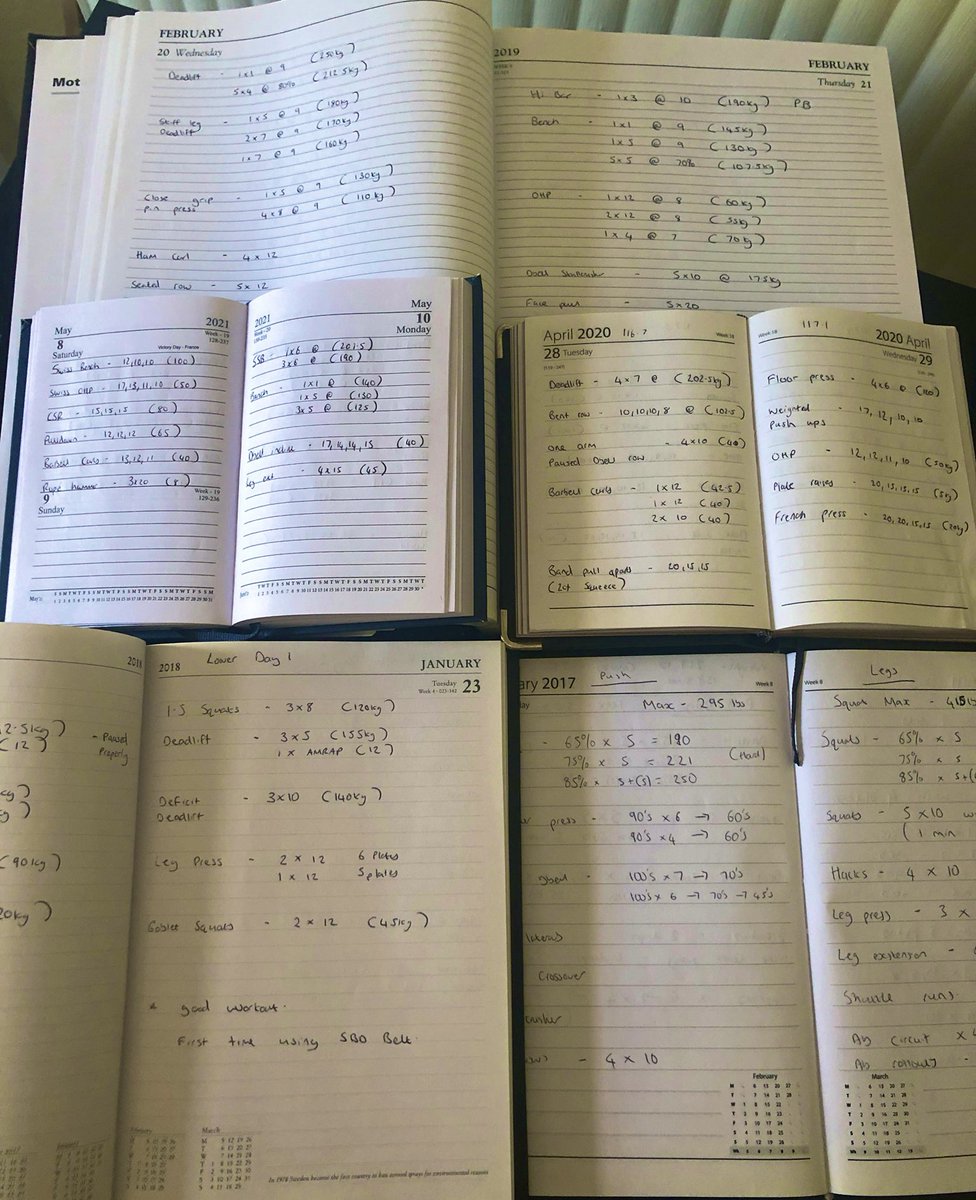 Mot
FEBRUARY
20 Wednesday
Deadlift - 1x1 @ 9 (250kg)
5x4 @ 80% (212.5kg)
Stiff leg Deadlift - 1x5 @ 9 (180kg)
2x7 @ 9 (170kg)
1x7 @ 9 (160kg)
Close grip pin press - 1x5 @ 9 (130kg)
4x8 @ 9 (110kg)
Ham curl - 4x12
Seated row - 5x12
2019
FEBRUARY
Thursday 21
Hi Bar - 1x3 @ 10 (190kg) PB
Bench - 1x1 @ 9 (145kg)
1x5 @ 9 (130kg)
5x5 @ 70% (107.5kg)
OHP 1x12 @ 8 (60kg)
2x12 @ 8 (55kg)
1x4 @ 7 (70kg)
5x10 @ 17.5kg
Face pull - 5x20
May
2021
8
Week - 19
128-237
Saturday
Victory Day - France
Swiss Bench - 12,10,10 (100)
Swiss OHP - 17,13,11,10 (50)
CSR - 15,15,15 (80)
12,12,12 (65)
Barbell Curls - 13,12,11 (40)
Rope hammer - 3x20 (8)
9
Week - 19
129-236
Sunday
2021
May
10
Monday
SSB - 1x6 @ (201.5)
3x6 @ (190)
Bench - 1x1 @ (140)
1x5 @ (130)
3x5 @ (125)
Dbell incline - 17,14,14,15 (40)
Leg ext - 4x15 (45)
April 2020 116.7
Week 18
28 Tuesday
Deadlift - 4x7 @ (202.5kg)
Bent row - 10,10,10,8 @ (102.5)
One arm - 4x10 (40)
Paused Dbell row
Barbell curls - 1x12 (42.5)
1x12 (40)
2x10 (40)
Band pull aparts - 20,15,15
(2ct squeeze)
Week 18
117.1
2020 April
Wednesday 29
Floor press - 4x6 @ (120)
Weighted push ups - 17,12,10,10
OHP - 12,12,11,10 (50kg)
Plate raises - 20,15,15,15 (5kg)
French press - 20,20,15,15 (20kg)
2018
2.5kg)
(12)
- Paused Properly
(90kg)
20kg)
2018 Lower Day 1
JANUARY
Tuesday 23
Week 4 · 023-342
1-S Squats - 3x8 (120kg)
Deadlift - 3x5 (155kg)
1x AMRAP (12)
Deficit Deadlift - 3x10 (140kg)
Leg Press - 2x12 6 Plates
1x12 5 plates
Goblet Squats - 2x12 (45kg)
* good workout.
First time using SBD Belt.
February
March
In 1978 Sweden became the first country to ban aerosol sprays for environmental reasons
ary 2017 Push
Week 8
Max - 295 lbs
- 65% x 5 = 190
75% x 5 = 221 (Hard)
85% x 5+(5) = 250
press - 90's x 6 → 60's
90's x 4 → 60's
100's x 7 → 70's
100's x 6 → 70's → 45's
Crossover
- 4x10
February
Week 8
Legs
Squat Max - 415lb
Squats - 65% x 5
75% x 5
85% x 5+(
Squats - 5x10
(1 min
Hacks - 4x10
Leg press - 3x
Leg extension -
Shuttle runs
Ab Circuit x4
Ab rollouts -
March